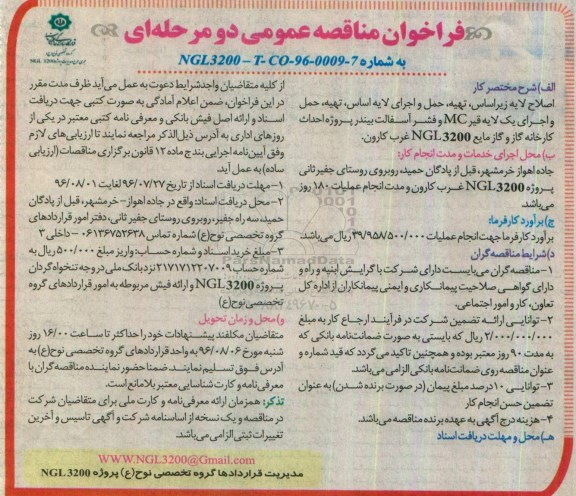 فراخوان مناقصه عمومی دو مرحله‌ای
به شماره NGL3200 – T- CO-96-0009-7
الف) شرح مختصر کار
اصلاح لایه زیراساس، تهیه، حمل و اجرای لایه اساس، تهیه، حمل
و اجرای یک لایه قیر MC و قشر آسفالت بیندر پروژه احداث
کارخانه گاز و گاز مایع NGL 3200 غرب کارون.
ب) محل اجرای خدمات و مدت انجام کار:
جاده اهواز خرمشهر، قبل از پادگان حمید، روبروی روستای جفیر ثانی
پروژه NGL3200 غرب کارون و مدت انجام عملیات ۱۸۰ روز
می‌باشد.
ج) برآورد کارفرما:
برآورد کارفرما جهت انجام عملیات ۳۹/۹۵۸/۵۰۰/۰۰۰ ریال می‌باشد.
د) شرایط مناقصه گران
۱- مناقصه گران می‌بایست دارای شرکت با گرایش ابنیه و راه و
دارای گواهی صلاحیت پیمانکاری و ایمنی پیمانکاران از اداره کل
تعاون، کار و امور اجتماعی.
۲- توانایی ارائه تضمین شرکت در فرآیند ارجاع کار به مبلغ
۲/۰۰۰/۰۰۰/۰۰۰ ریال که بایستی به صورت ضمانت‌نامه بانکی که
به مدت ۹۰ روز معتبر بوده و همچنین تاکید می‌گردد که قید شماره و
عنوان مناقصه روی ضمانت‌نامه بانکی الزامی می‌باشد.
۳- توانایی ۱۰ درصد مبلغ پیمان (در صورت برنده شدن) به عنوان
تضمین حسن انجام کار
۴- هزینه درج آگهی به عهده برنده مناقصه می‌باشد.
هـ) محل و مهلت دریافت اسناد
از کلیه متقاضیان واجد شرایط دعوت به عمل می‌آید ظرف مدت مقرر
در این فراخوان، ضمن اعلام آمادگی به صورت کتبی جهت دریافت
اسناد و ارائه اصل فیش بانکی و معرفی نامه کتبی معتبر در یکی از
روزهای اداری به آدرس ذیل‌الذکر مراجعه نمایند تا ارزیابی‌های لازم
وفق آیین نامه اجرایی بند ج ماده ۱۲ قانون برگزاری مناقصات (ارزیابی
ساده) به عمل آید.
۱- مهلت دریافت اسناد از تاریخ ۹۶/۰۷/۲۷ لغایت ۹۶/۰۸/۰۱
۲- محل دریافت اسناد واقع در جاده اهواز - خرمشهر، قبل از پادگان
حمید، سه راه جفیر، روبروی روستای جفیر ثانی، دفتر امور قراردادهای
گروه تخصصی نوح(ع) شماره تماس ۰۶۱۳۶۷۵۲۶۳۸ - داخلی ۳
۳- مبلغ خرید اسناد و شماره حساب: واریز مبلغ ۵۰۰/۰۰۰ ریال به
شماره حساب ۲۱۷۱۷۱۲۲۰۷۰۰۹ نزد بانک ملی در وجه تنخواه گردان
پروژه NGL3200 و ارائه فیش مربوطه به امور قراردادهای گروه
تخصصی نوح(ع)
و) محل و زمان تحویل
متقاضیان مکلفند پیشنهادات خود را حداکثر تا ساعت ۱۶/۰۰ روز
شنبه مورخ ۹۶/۰۸/۰۶ به واحد قراردادهای گروه تخصصی نوح(ع) به
آدرس فوق تسلیم نمایند. ضمنا حضور نماینده مناقصه گران با
معرفی‌نامه و کارت شناسایی معتبر بلامانع است.
تذکر: همزمان ارائه معرفی‌نامه و کارت ملی برای متقاضیان شرکت
در مناقصه و یک نسخه از اساسنامه شرکت و آگهی تاسیس و آخرین
تغییرات ثبتی الزامی می‌باشد.
WWW.NGL3200@Gmail.com
مدیریت قراردادها گروه تخصصی نوح(ع) پروژه NGL 3200